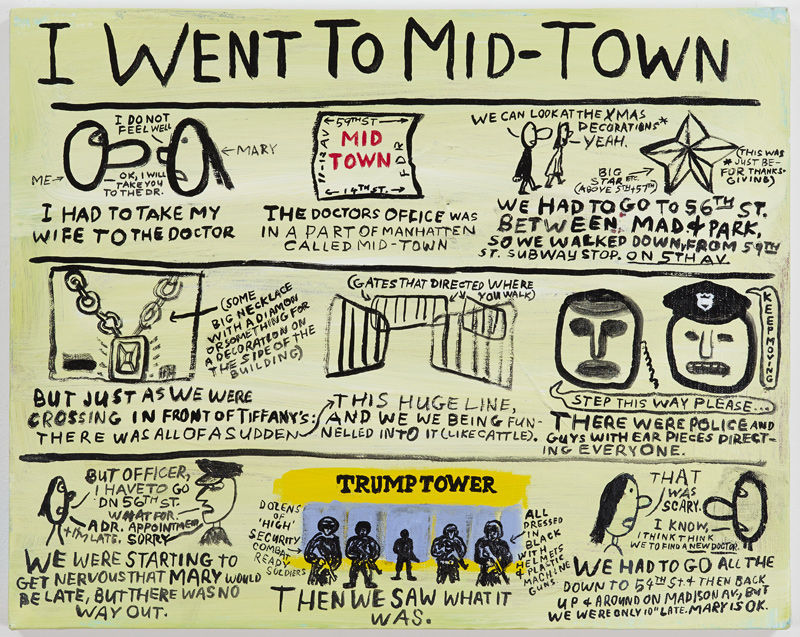 I WENT TO MID-TOWN
I DO NOT
FEEL WELL
ME→
←MARY
OK, I WILL
TAKE YOU
TO THE DR.
I HAD TO TAKE MY
WIFE TO THE DOCTOR
←59TH ST→
MID
TOWN
FDR
←14TH ST.→
THE DOCTORS OFFICE WAS
IN A PART OF MANHATTEN
CALLED MID-TOWN
WE CAN LOOK AT THE XMAS
DECORATIONS*
YEAH.
BIG
STAR ETC.
(ABOVE 5TH & 57TH)
(THIS WAS
* JUST BE-
FOR THANKS-
GIVING)
WE HAD TO GO TO 56TH ST.
BETWEEN MAD & PARK,
SO WE WALKED DOWN, FROM 59TH
ST. SUBWAY STOP. ON 5TH AV.
(SOME
BIG NECKLACE
WITH A DIAMON
OR SOMETHING FOR
A DECORATION ON
THE SIDE OF THE
BUILDING)
BUT JUST AS WE WERE
CROSSING IN FRONT OF TIFFANY'S:
THERE WAS ALL OF A SUDDEN
(GATES THAT DIRECTED WHERE
YOU WALK)
THIS HUGE LINE,
AND WE WE BEING FUN-
NELLED INTO IT (LIKE CATTLE).
KEEP MOVING
STEP THIS WAY PLEASE...
THERE WERE POLICE AND
GUYS WITH EAR PIECES DIRECT-
ING EVERYONE.
BUT OFFICER,
I HAVE TO GO
ON 56TH ST.
WHAT FOR.
A DR. APPOINTMENT
LATE, SORRY
WE WERE STARTING TO
GET NERVOUS THAT MARY WOULD
BE LATE, BUT THERE WAS NO
WAY OUT.
TRUMP TOWER
DOZENS
OF
'HIGH'
SECURITY
COMBAT
READY
SOLDIERS
ALL
DRESSED
IN
BLACK
WITH
HELMETS
& PLASTIC
MACHINE
GUNS.
THEN WE SAW WHAT IT
WAS.
THAT
WAS
SCARY.
I KNOW,
I THINK THINK
WE TO FIND A NEW DOCTOR.
WE HAD TO GO ALL THE
DOWN TO 54TH ST. & THEN BACK
UP & AROUND ON MADISON AV, BUT
WE WERE ONLY 10" LATE. MARY IS OK.